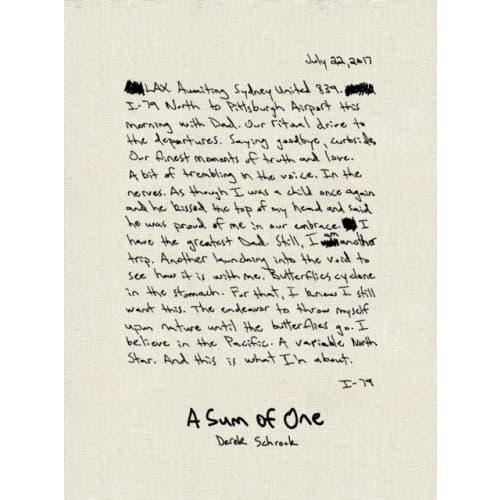 July 22, 2017
LAX Awaiting Sydney United 839.
I-79 North to Pittsburgh Airport this
morning with Dad. Our ritual drive to
the departures. Saying goodbye, curbside.
Our finest moments of truth and love.
A bit of trembling in the voice. In the
nerves. As though I was a child once again
and he kissed the top of my head and said
he was proud of me in our embrace. I
have the greatest Dad. Still, I am another
trip. Another launching into the void to
see how it is with me. Butterflies cyclone
in the stomach. For that, I know I still
want this. The endeavor to throw myself
upon nature until the butterflies go. I
believe in the Pacific. A variable North
Star. And this is what I'm about.
I-79
A Sum of One
Derek Schrock